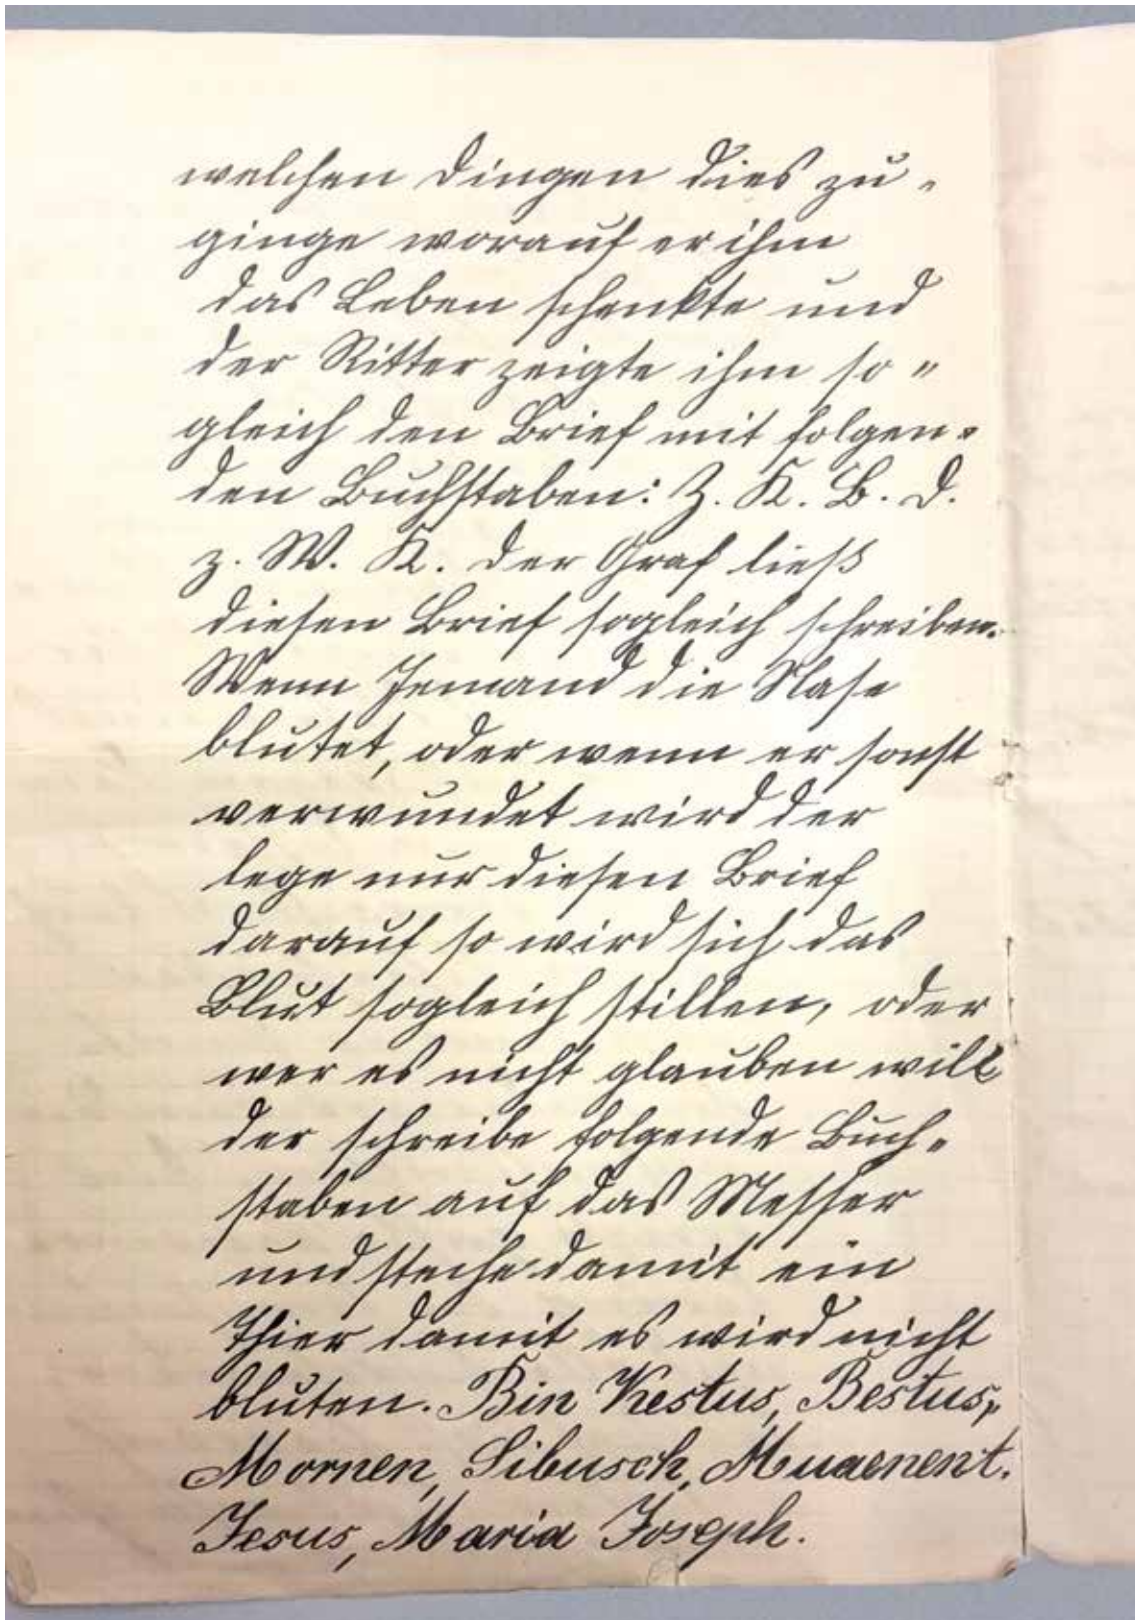 welchen Dingen dies zu-
ginge worauf er ihm
das Leben schenkte und
der Ritter zeigte ihm so-
gleich den Brief mit folgen-
den Buchstaben: Z. K. B. D.
z. W. K. Der Graf ließ
diesen Brief sogleich schreiben.
Wenn Jemand die Nase
blutet, oder wenn er sonst
verwundet wird der
lege nur diesen Brief
darauf so wird sich das
Blut sogleich stillen, oder
wer es nicht glauben will
der schreibe folgende Buch-
staben auf das Messer
und steche damit ein
Thier damit es wird nicht
bluten. Bin Kestus, Bestus,
Mornen, Sibusch, Muaenent.
Jesus, Maria Joseph.